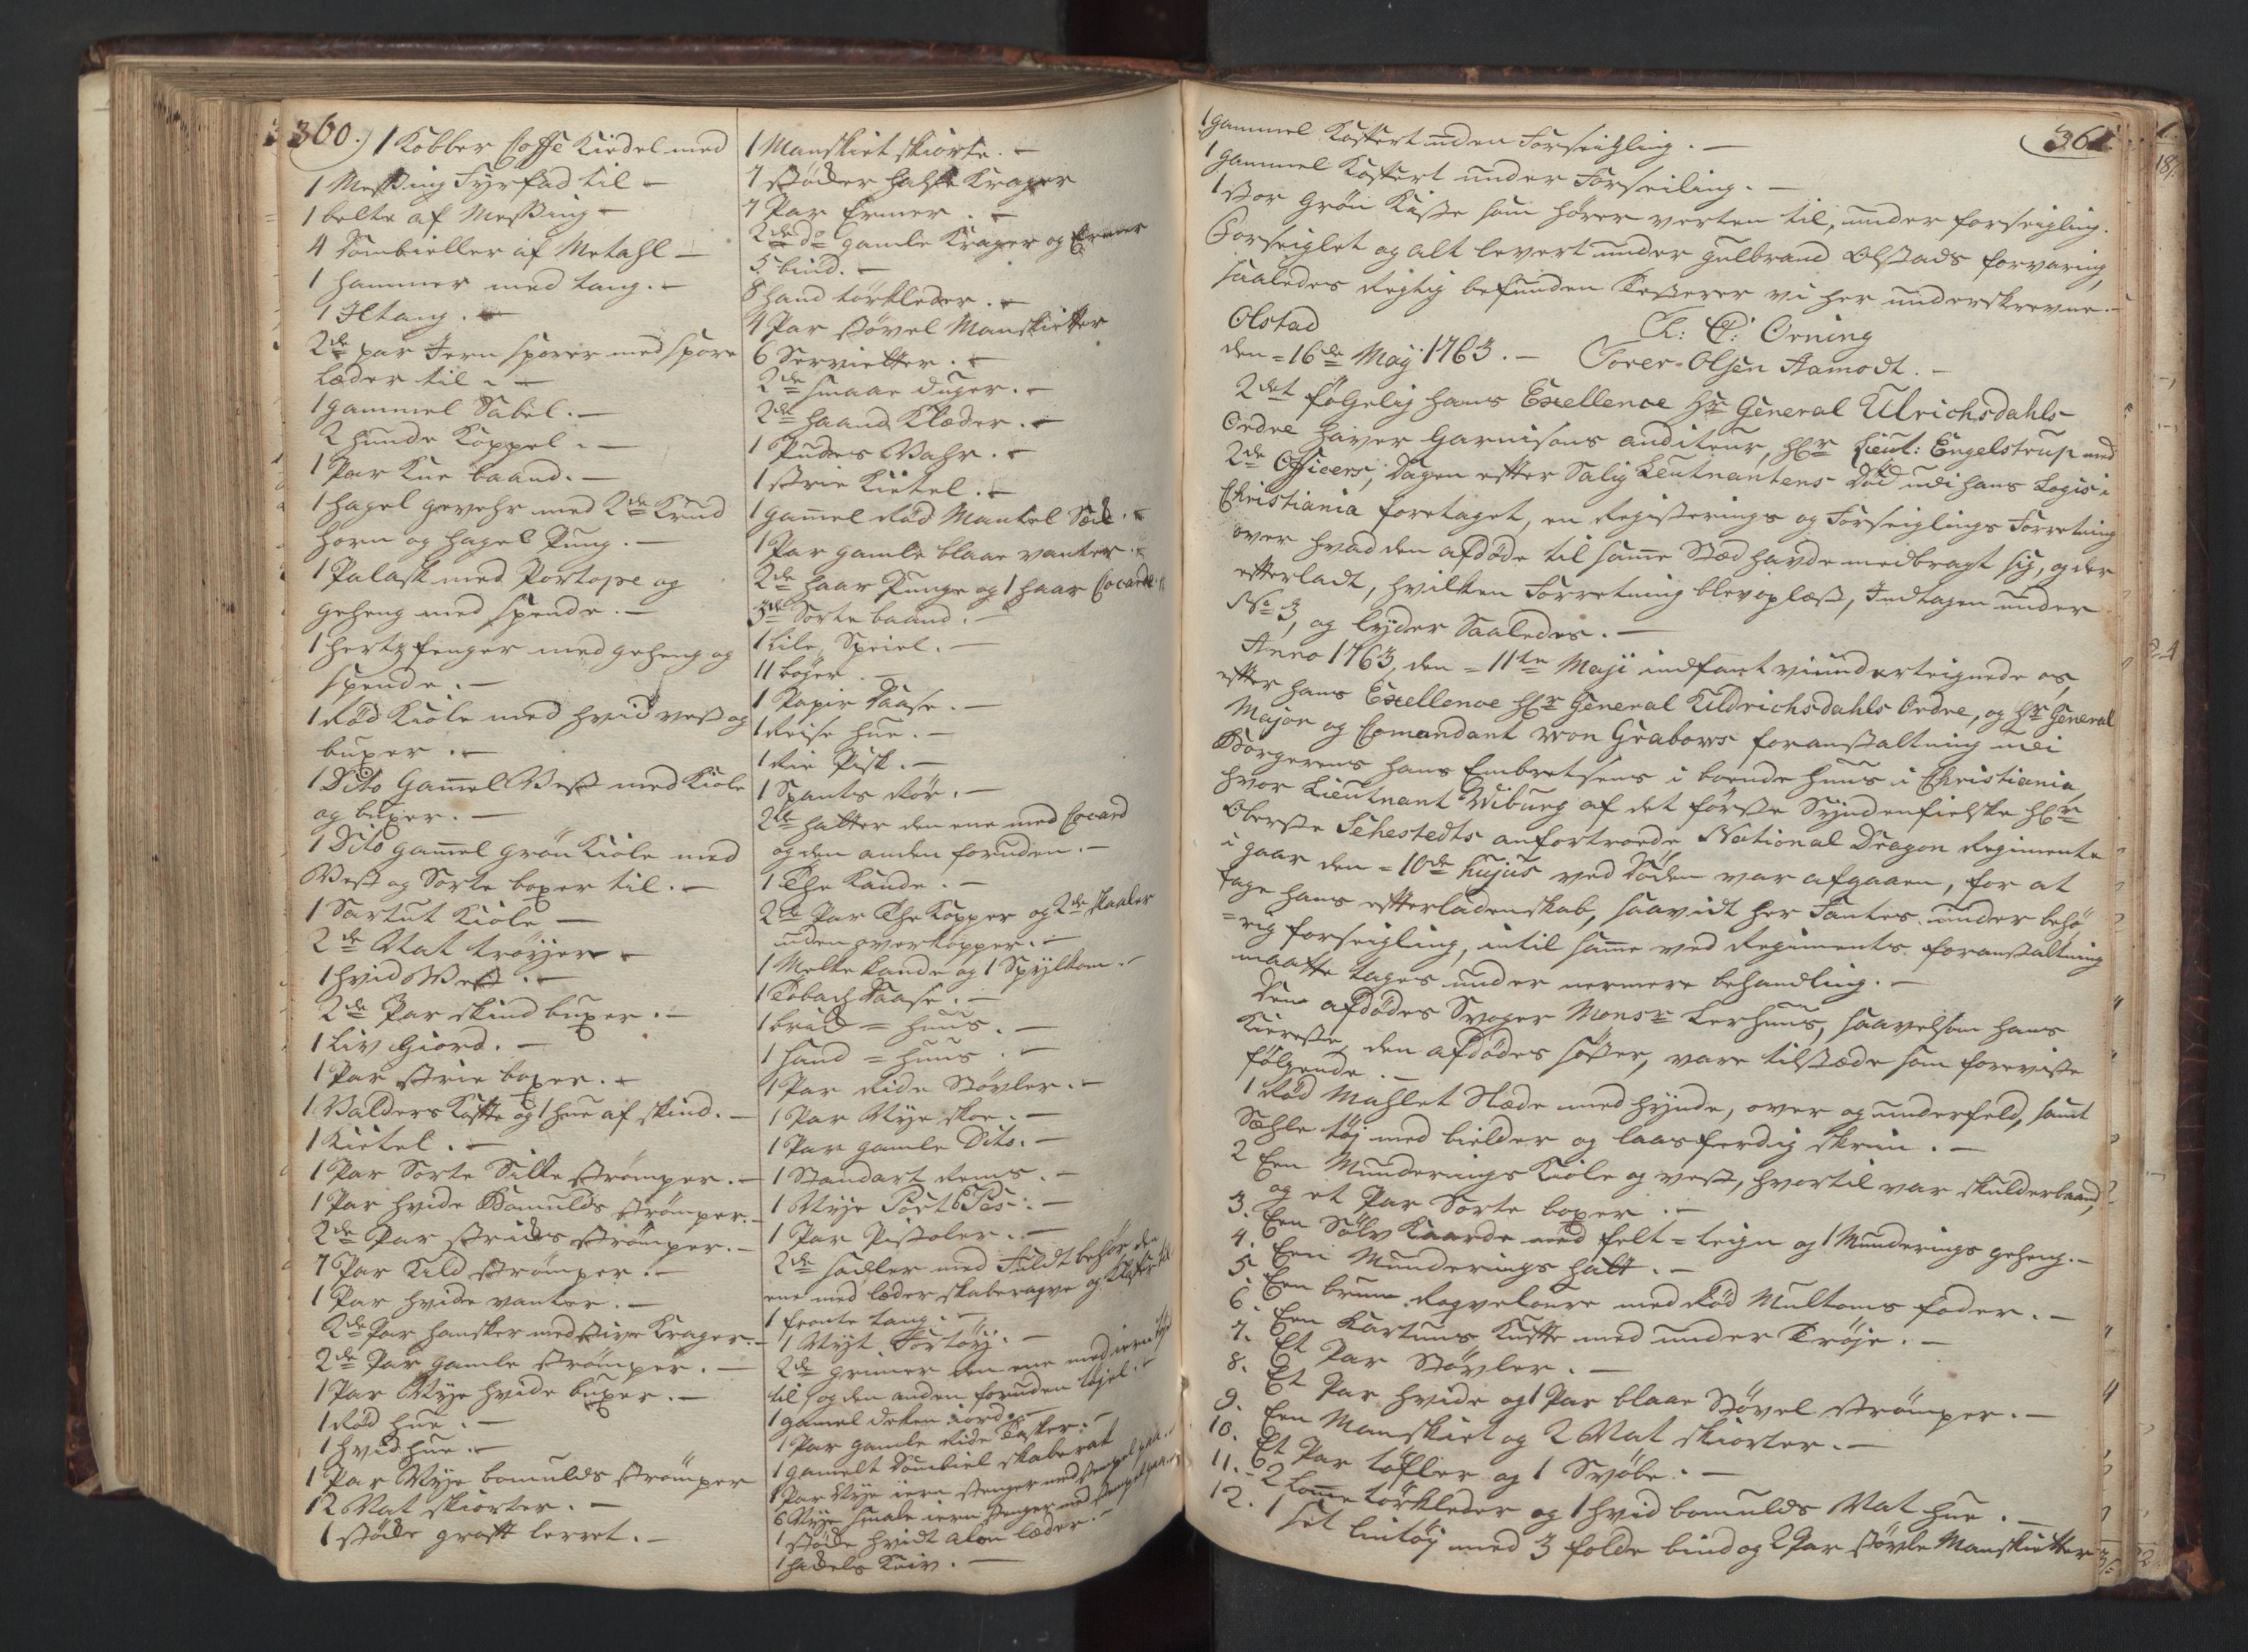 360.) 1 Kobber Coffe Kiedel med
1 Messing Fyrfad til —
1 belte af Messing —
4 Dombieller af Metahl —
1 hammer med tang. —
1 Iltang. —
2de par Jern sporer med spore
læder til. —
1 gammel Sabel. —
2 hunde Koppel. —
1 Par Knebaand. —
1 hagel gevehr med 2de Krud
horn og hagel Pung. —
1 Palask med Portope og
geheng med spende. —
1 hertzfenger med geheng og
spende. —
1 Rød Kiole med hvid vest og
buxer. —
1 Dito Gammel Vest med Kiole
og buxer. —
1 Dito gammel grøn Kiole med
Vest og Sorte boxer til. —
1 Sartut Kiole —
2de Nat trøyer —
1 hvid Vest. —
2de Par skind buxer. —
1 Liv Giord. —
1 Par strie boxer. —
1 Valders Kofte og 1 hue af skind. —
1 Kietel. —
1 Par Sorte Silke strømper. —
1 Par hvide Bomulds strømper. —
2de Par strides strømper. —
7 Par Uld strømper. —
1 Par hvide vanter. —
2de Par hansker med stive Krager. —
2de Par gamle strømper. —
1 Par Nye hvide buxer. —
1 Rød hue. —
1 hvid hue. —
1 Par Nye bomulds strømper
12 Nat skiorter. —
1 støkke groft lerret. —
1 Manskiet skiorte. —
7 støkker halse Krager
7 Par Ermer. —
2de do gamle Krager og Ermer
5 bind. —
8 hand tørkleder. —
4 Par støvel Manskietter
6 Servietter. —
2de smaae duger. —
2de haand Klæder. —
1 Pudes Vahr. —
1 strie Kietel. —
1 gammel Rød Mantel Sæk. —
1 Par gamle blaae vanter. —
2de haar Punge og 1 haar Cocarde
3de Sorte baand. —
1 Lile Speiel. —
11 bøger. —
1 Papir Daase. —
1 Reise hue. —
1 Rie Pisk. —
1 Spanks Rør. —
2de hatter den ene med Cocard
og den anden foruden. —
1 The Kande. —
2de Par The Kopper og 2de skaaler
uden overkopper. —
1 Melke kande og 1 Spyelkom. —
1 Tobach Daase. —
1 brid = huus. —
1 sand = huus. —
1 Par Ride Støvler. —
1 Par Nye skoe. —
1 Par gamle Dito. —
1 Standart Rems. —
1 Nye Port E Pes: —
1 Par Pistoler. —
2de sadler med Fuldt behør den
ene med læder skaberaqve og til
1 tang. —
1 Nyt Fortøy. —
2de grimer den ene med iern
til og den anden foruden tøyel. —
1 gamel deken iord. —
1 Par gamle Ride Tasker. —
1 gamelt Dombiel skaberak
1 Par Nye iern stenger med stempel paa. —
6 Nye smale iern stenger med stempel paa. —
1 støkke hvidt alun læder. —
1 hakkels Kniv. —
361
1 gammel Koffert uden Forseigling. —
1 gammel Koffert under Forseiling. —
1 stor grøn Kiste som hører verten til, under forseigling.
Forseiglet og alt levert under Gulbrand Olstads forvaring,
saaledes Rigtig befunden Testerer vi her underskrevne. —
Olstad
den = 16de Maÿ 1763. —
Ch: C: Orning
Torer-Olsen Aamodt. —
2det følgelig hans Excellence Hr General Ulrichsdahls
Ordre haver Garnisons auditeur, Hr Lieut: Engelstrup med
2de Officers, Dagen efter Salig Leutnantens Død udi hans Logis i
Christiania foretaget, en Registerings og Forseiglings Forretning
over hvad den afdøde til samme Stæd havde medbragt sig, og der
efterladt, hvilken Forretning blev oplæst, Indtagen under
No 3, og lyder Saaledes. —
Anno 1763, den = 11te Maji indfant vi undertegnede os,
efter hans Excellence Hr General Uldrichsdahls Ordre, og Hr General
Major og Comandant von Grabows foranstaltning udi
Borgerens hans Embretsens i boende huus i Christiania,
hvor Lieutnant Wiburg af det første Syndenfielske Hr
Oberste Sehestedts anfortroede National Dragon Regimente
i gaar den = 10de hujus ved Døden var afgaaen, for at
tage hans efterladenskab, saavidt her Fantes under behø,
=rig forseigling, intil samme ved Regiments foranstaltning
maatte tages under nermere behandling. —
Den afdødes Svoger Monsr Lerhuus, saavelsom hans
Kiereste, den afdødes søster, vare tilstæde som foreviste
følgende. —
1 Rød Mahlet Slæde med hynde, over og underfeld, samt
Sæhle tøj med bielder og laasferdig skrin. —
2 Een Munderings Kiole og vest, hvortil var skulderbaand,
og et Par Sorte boxer. —
3. Een Sølv Kaarde med felt=teign og 1 Munderings geheng. —
4. Een Munderings hatt. —
5 Een bruun Roqvelaure med Rød Multoms foder. —
6. Een Kartuns Kufte med under Trøje. —
7. Et Par Støvler. —
8. Et Par hvide og 1 Par blaae Støvel strømper. —
9. Een Manskiet og 2 Nat skiorter. —
10. Et Par tøfler og 1 Svøbe. —
11. 2 Lomme tørkleder og 1 hvid bomulds Nat hue. —
12. 1 set lintøy med 3 folde bind og 2 Par støvle Manskietter